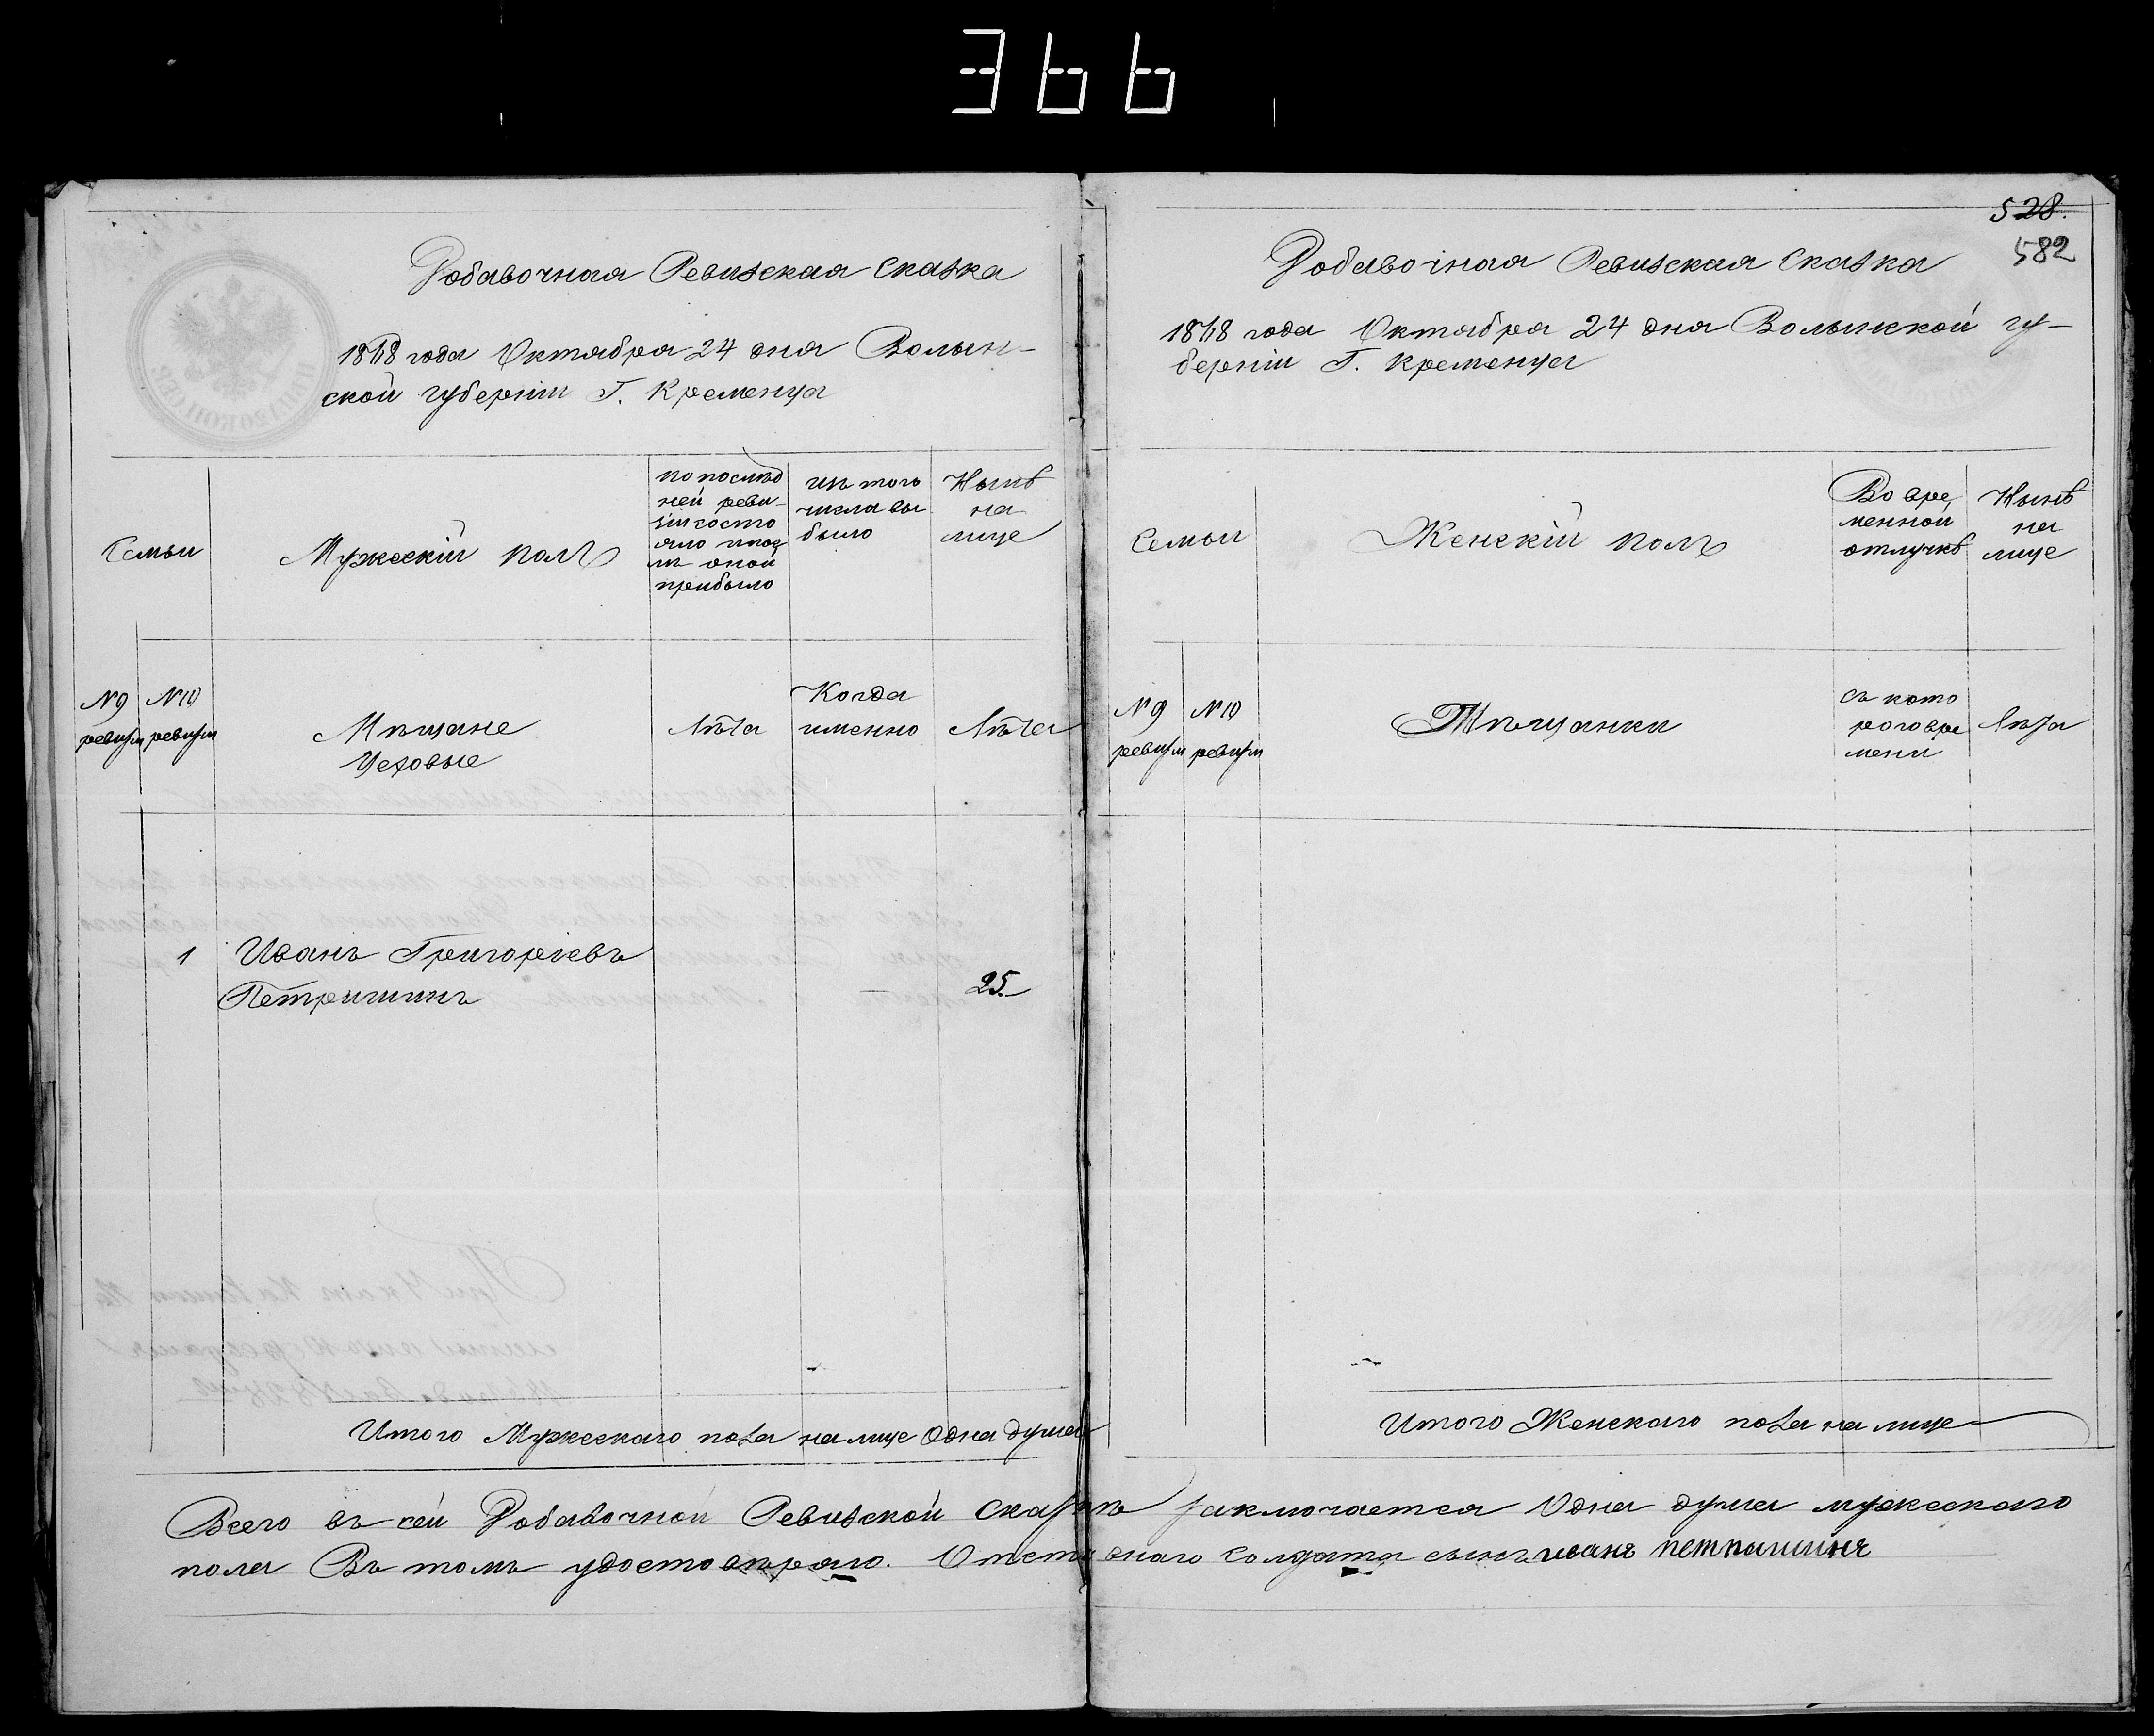 366
Добавочная Ревизская Сказка
1858 года Октября 24 дня Волын-
ской губерніи Г. Кременца
Семьи
Мужескій полъ
по послѣд
ней реви-
зіи состо
яло и пос
лѣ оной
прибыло
изъ того
числа вы
было
Нынѣ
на
лице
№ 9
ревизіи
№ 10
ревизіи
Мѣщане
Цеховые
Лѣта
Когда
именно
Лѣта
1 Иванъ Григоріевъ
Петришинъ — 25.
Итого Мужескаго пола на лице Одна душа
528.
582
Добавочная Ревизская Сказка
1858 года Октября 24 дня Волынской гу-
берніи Г. Кременца
Семьи
Женскій полъ
Во вре
менной
отлучкѣ
Нынѣ
на
лице
№ 9
ревизіи
№ 10
ревизіи
Мѣщанки
съ кото
раго вре
мени
Лѣта
Итого Женскаго пола на лице
Всего въ сей Добавочной Ревизской сказкѣ заключается Одна душа мужескаго
пола Въ томъ удостовѣряю. Отставнаго Солдата сынъ иванъ петришинъ